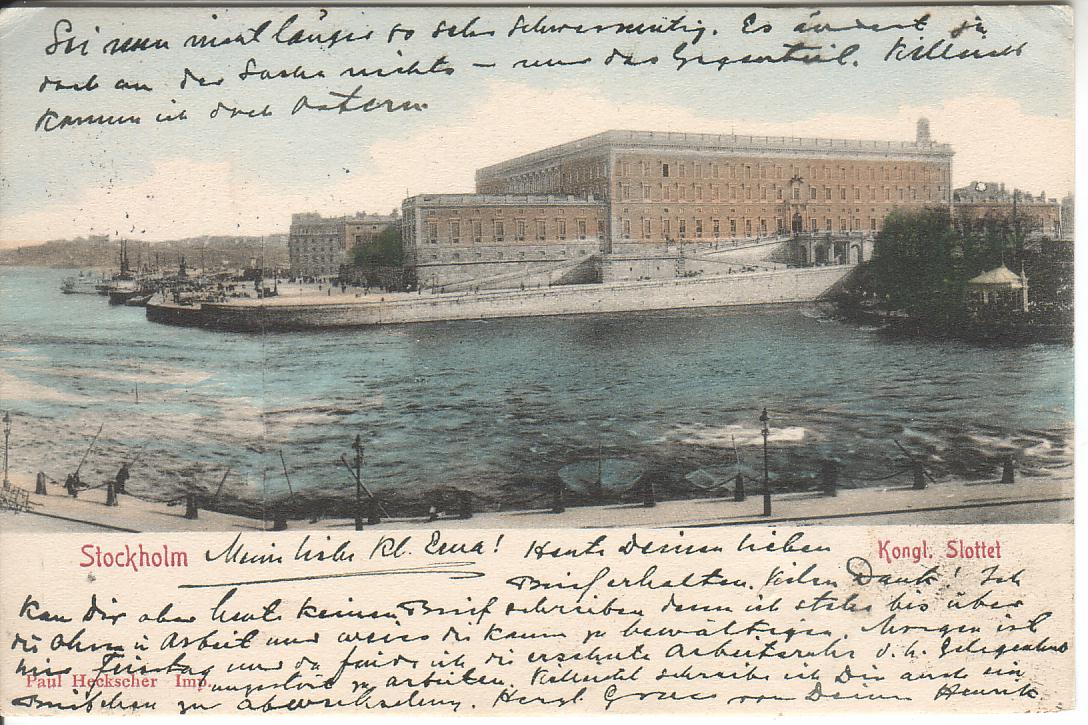 Sei nun nicht länger so sehr schwermutig. Es ändert ja
doch an der Sache nichts – nur das Gegenteil. Vielleicht
komme ich doch Ostern.
Stockholm
Mein liebe kl. Erna! Heute Deinen lieben
Kongl. Slottet
Brief erhalten. Vielen Dank! Ich
kan Dir aber heute keinen Brief schreiben denn ich stehe bis über
die Ohren in Arbeit und weiss die kaum zu bewältigen. Morgen ist
hier Feiertag und da finde ich die ersehnte Arbeitsruhe d.h. Gelegenheit
Paul Heckscher Imp.
ungestört zu arbeiten. Vielleicht schreibe ich Dir auch ein
Briefchen zur Abwechselung. Herzl. Gruss von Deinem Henrik